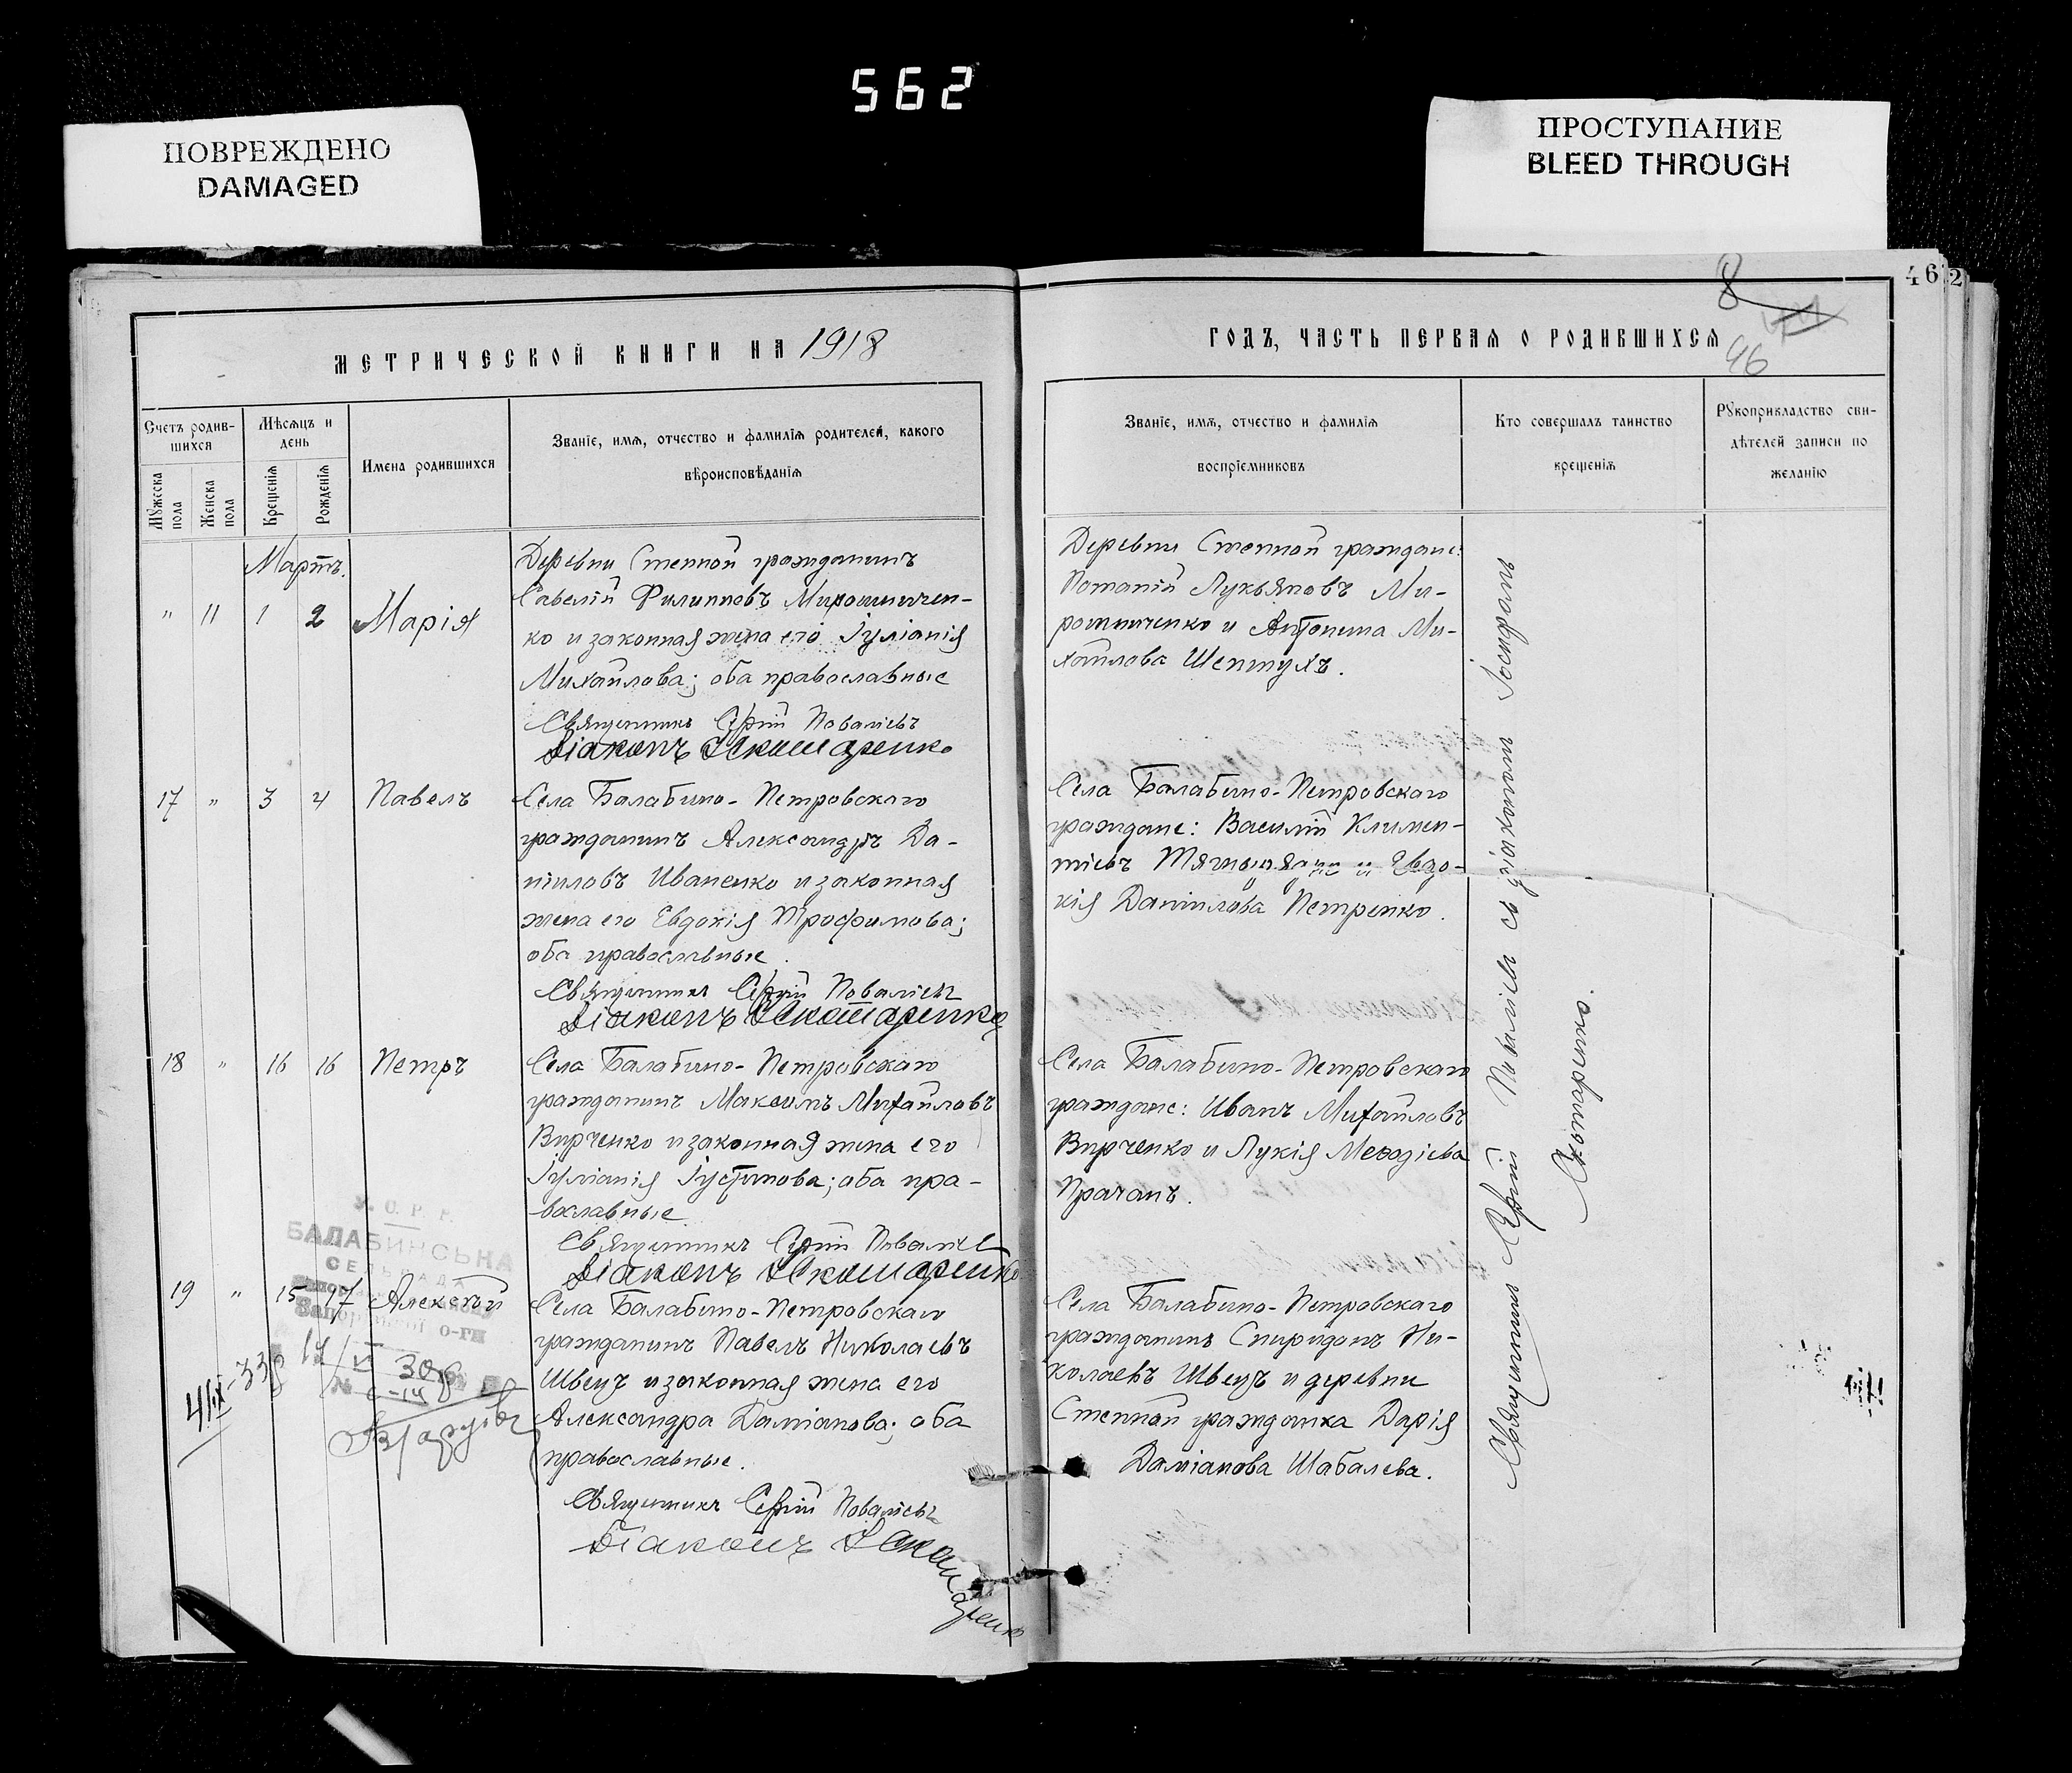 562
ПОВРЕЖДЕНО
DAMAGED
ПРОСТУПАНИЕ
BLEED THROUGH
462
8
46
МЕТРИЧЕСКОЙ КНИГИ НА 1918
ГОДЪ, ЧАСТЬ ПЕРВАЯ О РОДИВШИХСЯ
Счетъ родив-
шихся
Мужеска
пола
Женска
пола
Мѣсяцъ и
день
Крещенія
Рожденія
Имена родившихся
Званіе, имя, отчество и фамилія родителей, какого
вѣроисповѣданія
Званіе, имя, отчество и фамилія
воспріемниковъ
Кто совершалъ таинство
крещенія
Рукоприкладство сви-
дѣтелей записи по
желанію
Мартъ.
" 11 1 2 Марія
Деревни Степной гражданинъ
Савелій Филипповъ Мирошничен-
ко и законная жена его Іуліанія
Михайлова; оба православные
Священникъ Сергій Поваліевъ
Діаконъ І Скотаренко
Деревни Степной граждане:
Потапій Лукьяновъ Ми-
рошниченко и Антонина Ми-
хайлова Шептухъ.
17 " 3 4 Павелъ
Села Балабино-Петровскаго
гражданинъ Александръ Да-
ніиловъ Иваненко и законная
жена его Евдокія Трофимова;
оба православные.
Священникъ Сергій Поваліевъ
Діаконъ І Скотаренко
Села Балабино-Петровскаго
граждане: Василій Климен-
тіевъ и Евдо-
кія Даніилова Петренко.
18 " 16 16 Петръ
Села Балабино-Петровскаго
гражданинъ Максимъ Михайловъ
Вирченко и законная жена его
Іуліанія Іустинова; оба пра-
вославные
Священникъ Сергій Поваліевъ
Діаконъ І Скотаренко
Села Балабино-Петровскаго
граждане: Иванъ Михайловъ
Вирченко и Лукія Меѳодіева
Прачанъ.
19 " 15 17 Алексѣй
Села Балабино-Петровскаго
гражданинъ Павелъ Николаевъ
Швецъ и законная жена его
Александра Даміанова; оба
православные.
Священникъ Сергій Поваліевъ
Діаконъ І Скотаренко
Села Балабино-Петровскаго
гражданинъ Спиридонъ Ни-
колаевъ Швецъ и деревни
Степной гражданка Дарія
Даміанова Шабалева.
Священникъ Сергій Поваліевъ съ діакономъ Іосифомъ
Скотаренко.
У. С. Р. Р.
БАЛАБИНСЬКА
СЕЛЬРАДА